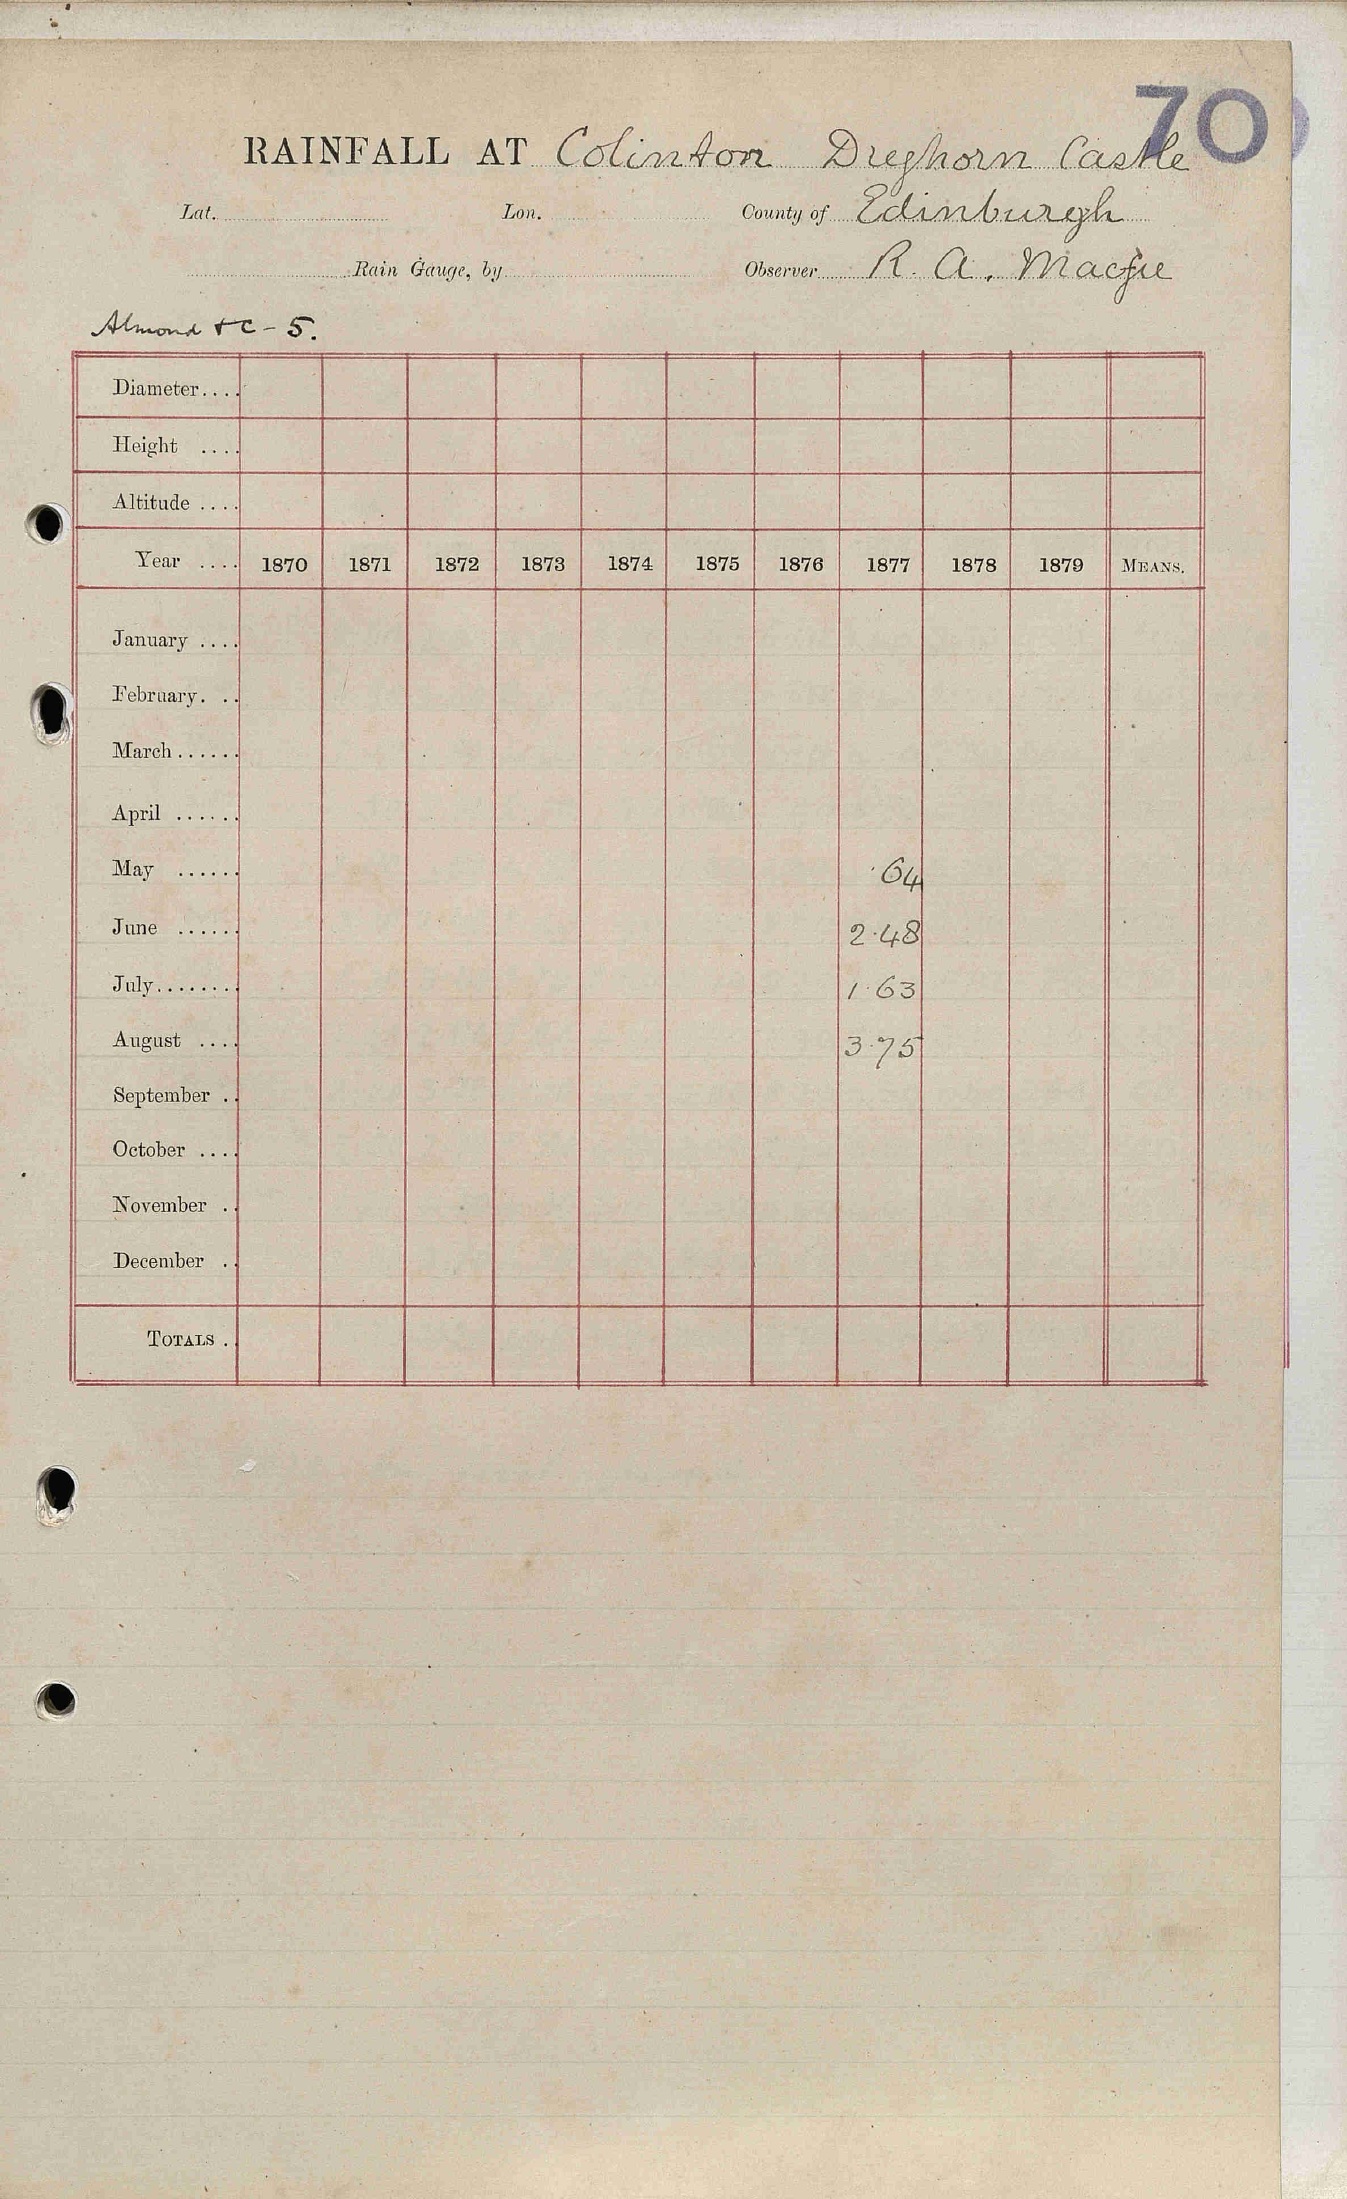 70
RAINFALL AT Colinton Dreghorn Castle
Lat. Lon. County of Edinburgh
Rain Gauge, by Observer R. A. Macfie
Almond &c - 5.
Diameter....
Height ....
Altitude ....
Year .... 1870 1871 1872 1873 1874 1875 1876 1877 1878 1879 MEANS.
January ....
February. ..
March......
April ......
May ...... .64
June ...... 2.48
July........ 1.63
August .... 3.75
September ..
October ....
November ..
December ..
TOTALS ..